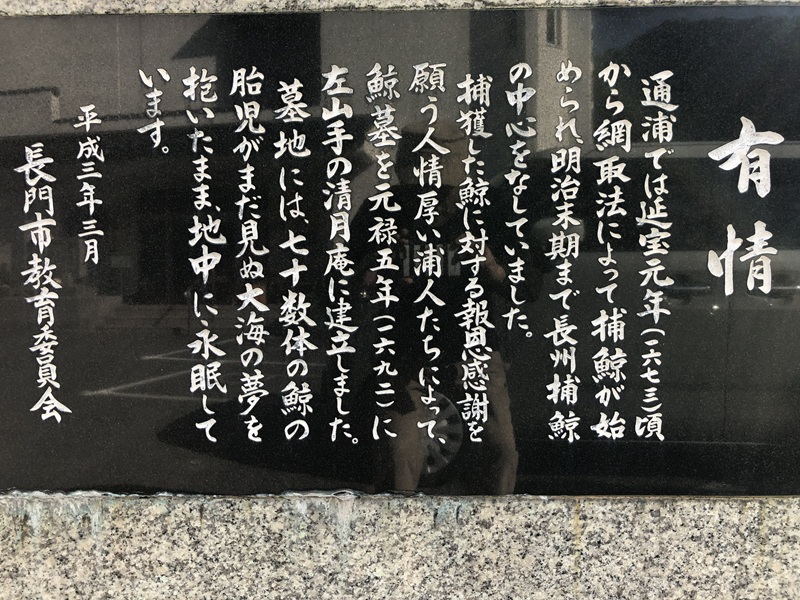 有情
通浦では延宝元年(一六七三)頃
から網取法によって捕鯨が始
められ、明治末期まで長州捕鯨
の中心をなしていました。
捕獲した鯨に対する報恩感謝を
願う人情厚い浦人たちによって、
鯨墓を元禄五年(一六九二)に
左山手の清月庵に建立しました。
墓地には、七十数体の鯨の
胎児がまだ見ぬ大海の夢を
抱いたまま、地中に永眠して
います。
平成三年三月
長門市教育委員会